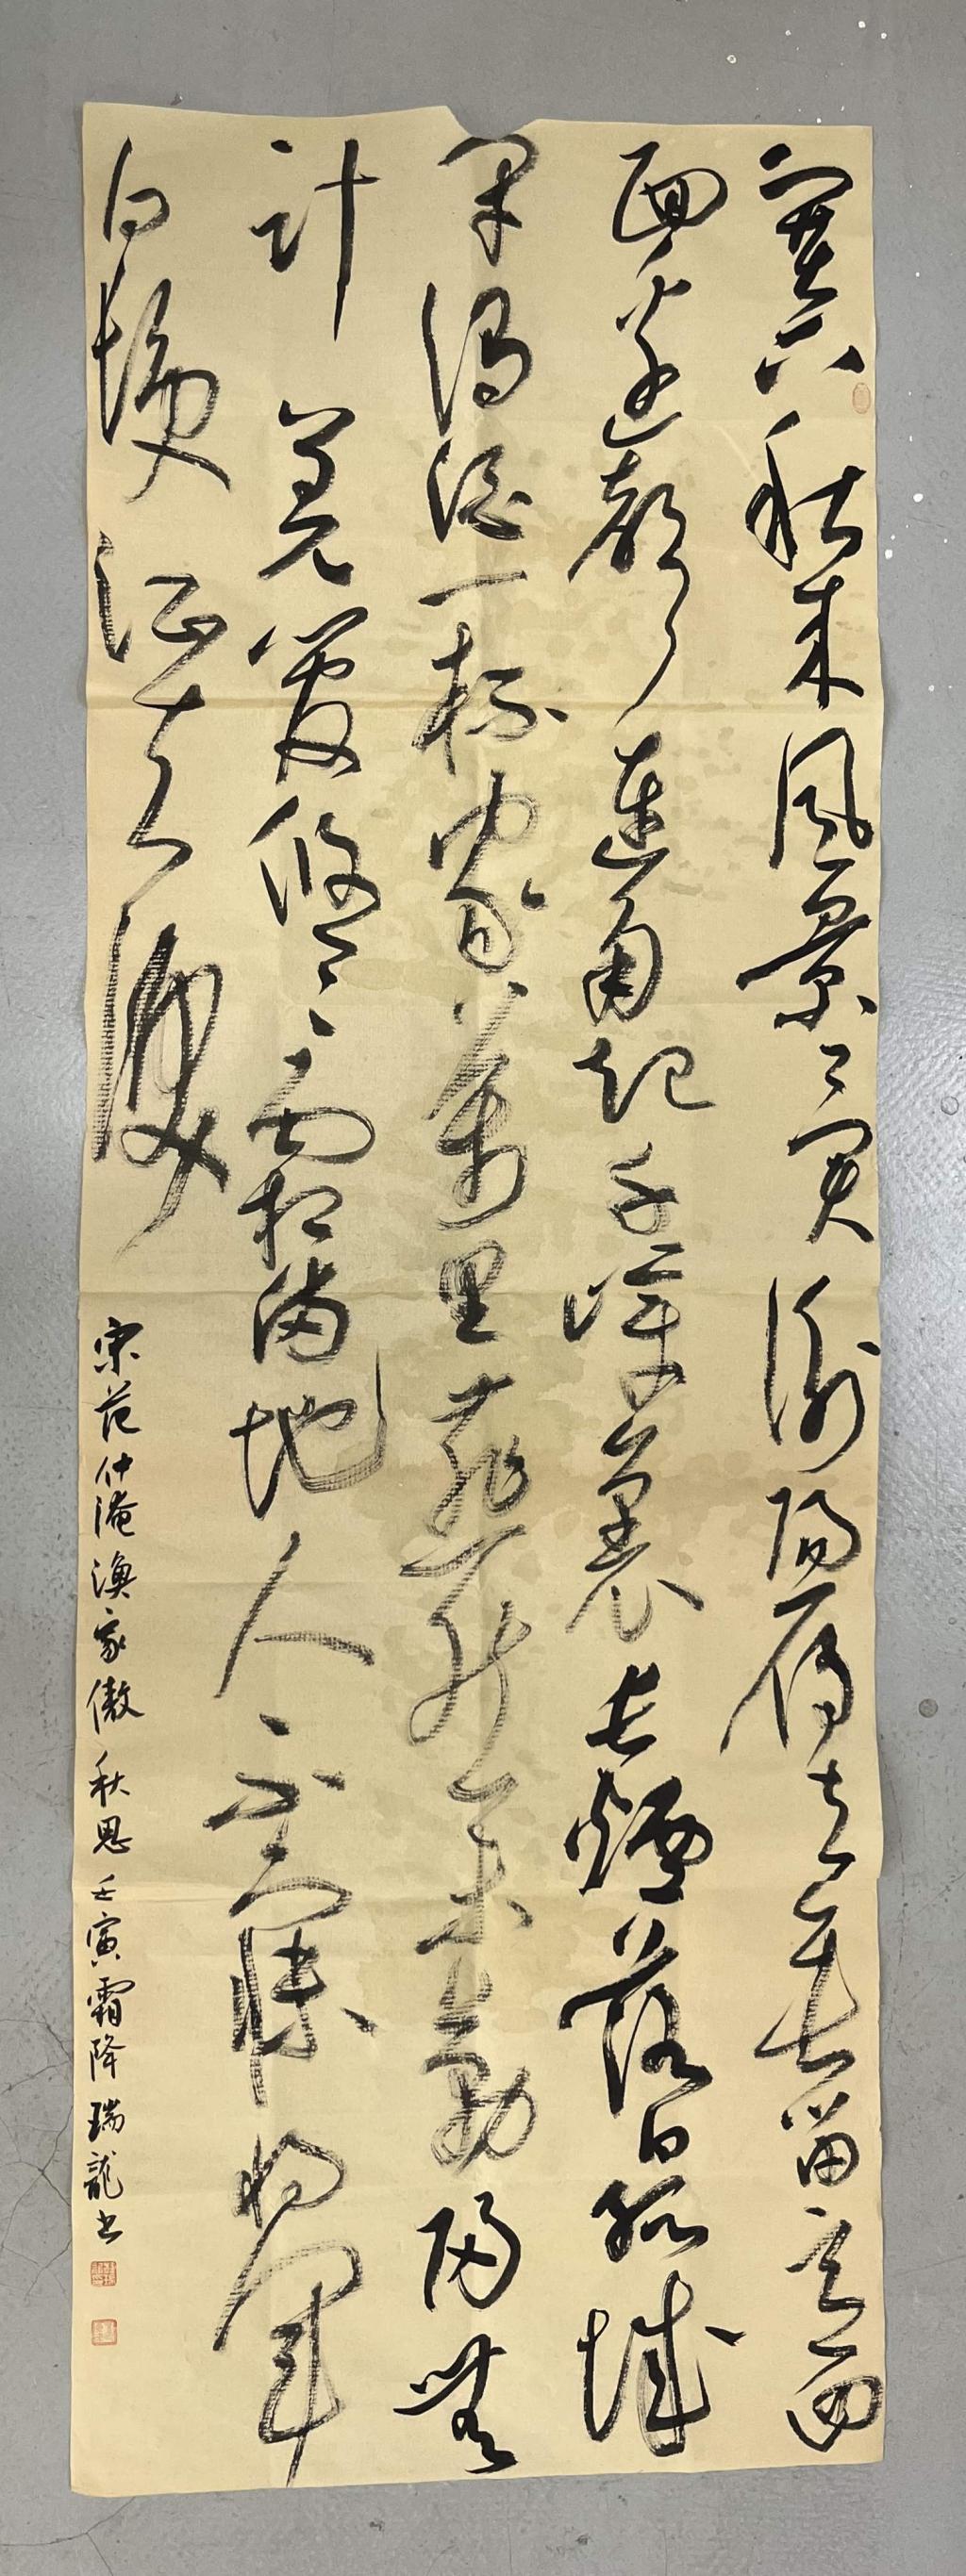 塞下秋来風景異衡陽雁去無留意四
面邊聲連角起千嶂裏長煙落日孤城
閉濁酒一杯家萬里燕然未勒歸無
計羌管悠〻霜滿地人不寐將軍
白髮征夫淚
宋范仲淹漁家傲秋思壬寅霜降瑞龍书